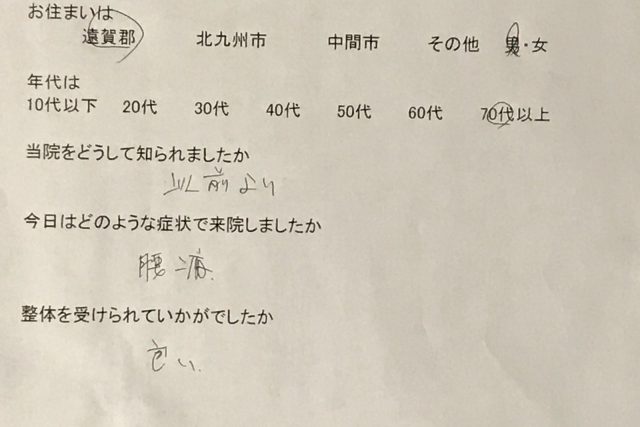 お住まいは
遠賀郡 北九州市 中間市 その他 男・女
年代は
10代以下 20代 30代 40代 50代 60代 70代以上
当院をどうして知られましたか
以前より
今日はどのような症状で来院しましたか
腰痛
整体を受けられていかがでしたか
良い